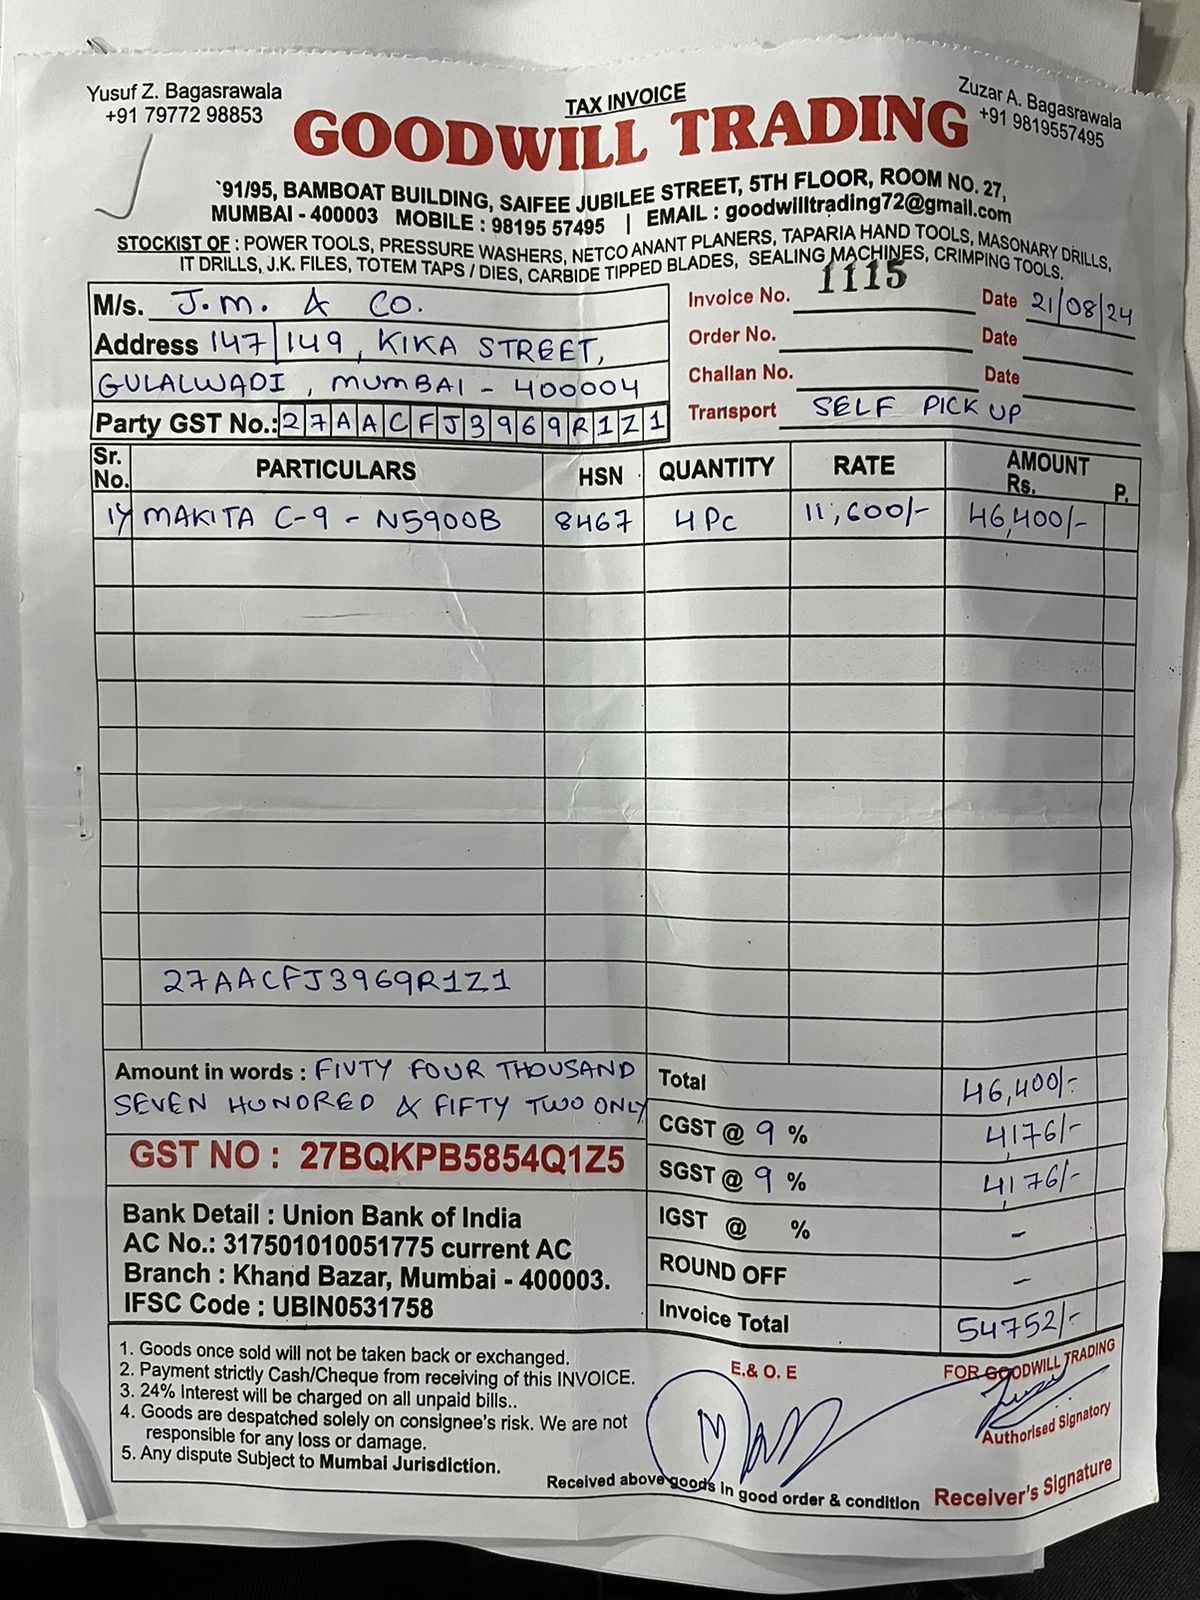 Yusuf Z. Bagasrawala
+91 79772 98853
TAX INVOICE
Zuzar A. Bagasrawala
+91 9819557495
GOODWILL TRADING
`91/95, BAMBOAT BUILDING, SAIFEE JUBILEE STREET, 5TH FLOOR, ROOM NO. 27,
MUMBAI - 400003 MOBILE : 98195 57495 | EMAIL : goodwilltrading72@gmail.com
STOCKIST OF : POWER TOOLS, PRESSURE WASHERS, NETCO ANANT PLANERS, TAPARIA HAND TOOLS, MASONARY DRILLS,
IT DRILLS, J.K. FILES, TOTEM TAPS / DIES, CARBIDE TIPPED BLADES, SEALING MACHINES, CRIMPING TOOLS.
M/s. J.M. & CO.
Address 147/149, KIKA STREET,
GULALWADI, MUMBAI - 400004
Party GST No.: 27AACFJ3969R1Z1
Invoice No. 1115 Date 21/08/24
Order No. Date
Challan No. Date
Transport SELF PICK UP
Sr. No. PARTICULARS HSN QUANTITY RATE AMOUNT Rs. P.
1) MAKITA C-9 - N5900B 8467 4 Pc 11,600/- 46,400/-
27AACFJ3969R1Z1
Amount in words : FIVTY FOUR THOUSAND
SEVEN HUNDRED & FIFTY TWO ONLY
Total 46,400/-
CGST @ 9 % 4,176/-
SGST @ 9 % 4,176/-
IGST @ % -
ROUND OFF -
Invoice Total 54752/-
GST NO : 27BQKPB5854Q1Z5
Bank Detail : Union Bank of India
AC No.: 317501010051775 current AC
Branch : Khand Bazar, Mumbai - 400003.
IFSC Code : UBIN0531758
1. Goods once sold will not be taken back or exchanged.
2. Payment strictly Cash/Cheque from receiving of this INVOICE.
3. 24% Interest will be charged on all unpaid bills..
4. Goods are despatched solely on consignee's risk. We are not
responsible for any loss or damage.
5. Any dispute Subject to Mumbai Jurisdiction.
E.& O. E
FOR GOODWILL TRADING
Authorised Signatory
Received above goods in good order & condition Receiver's Signature